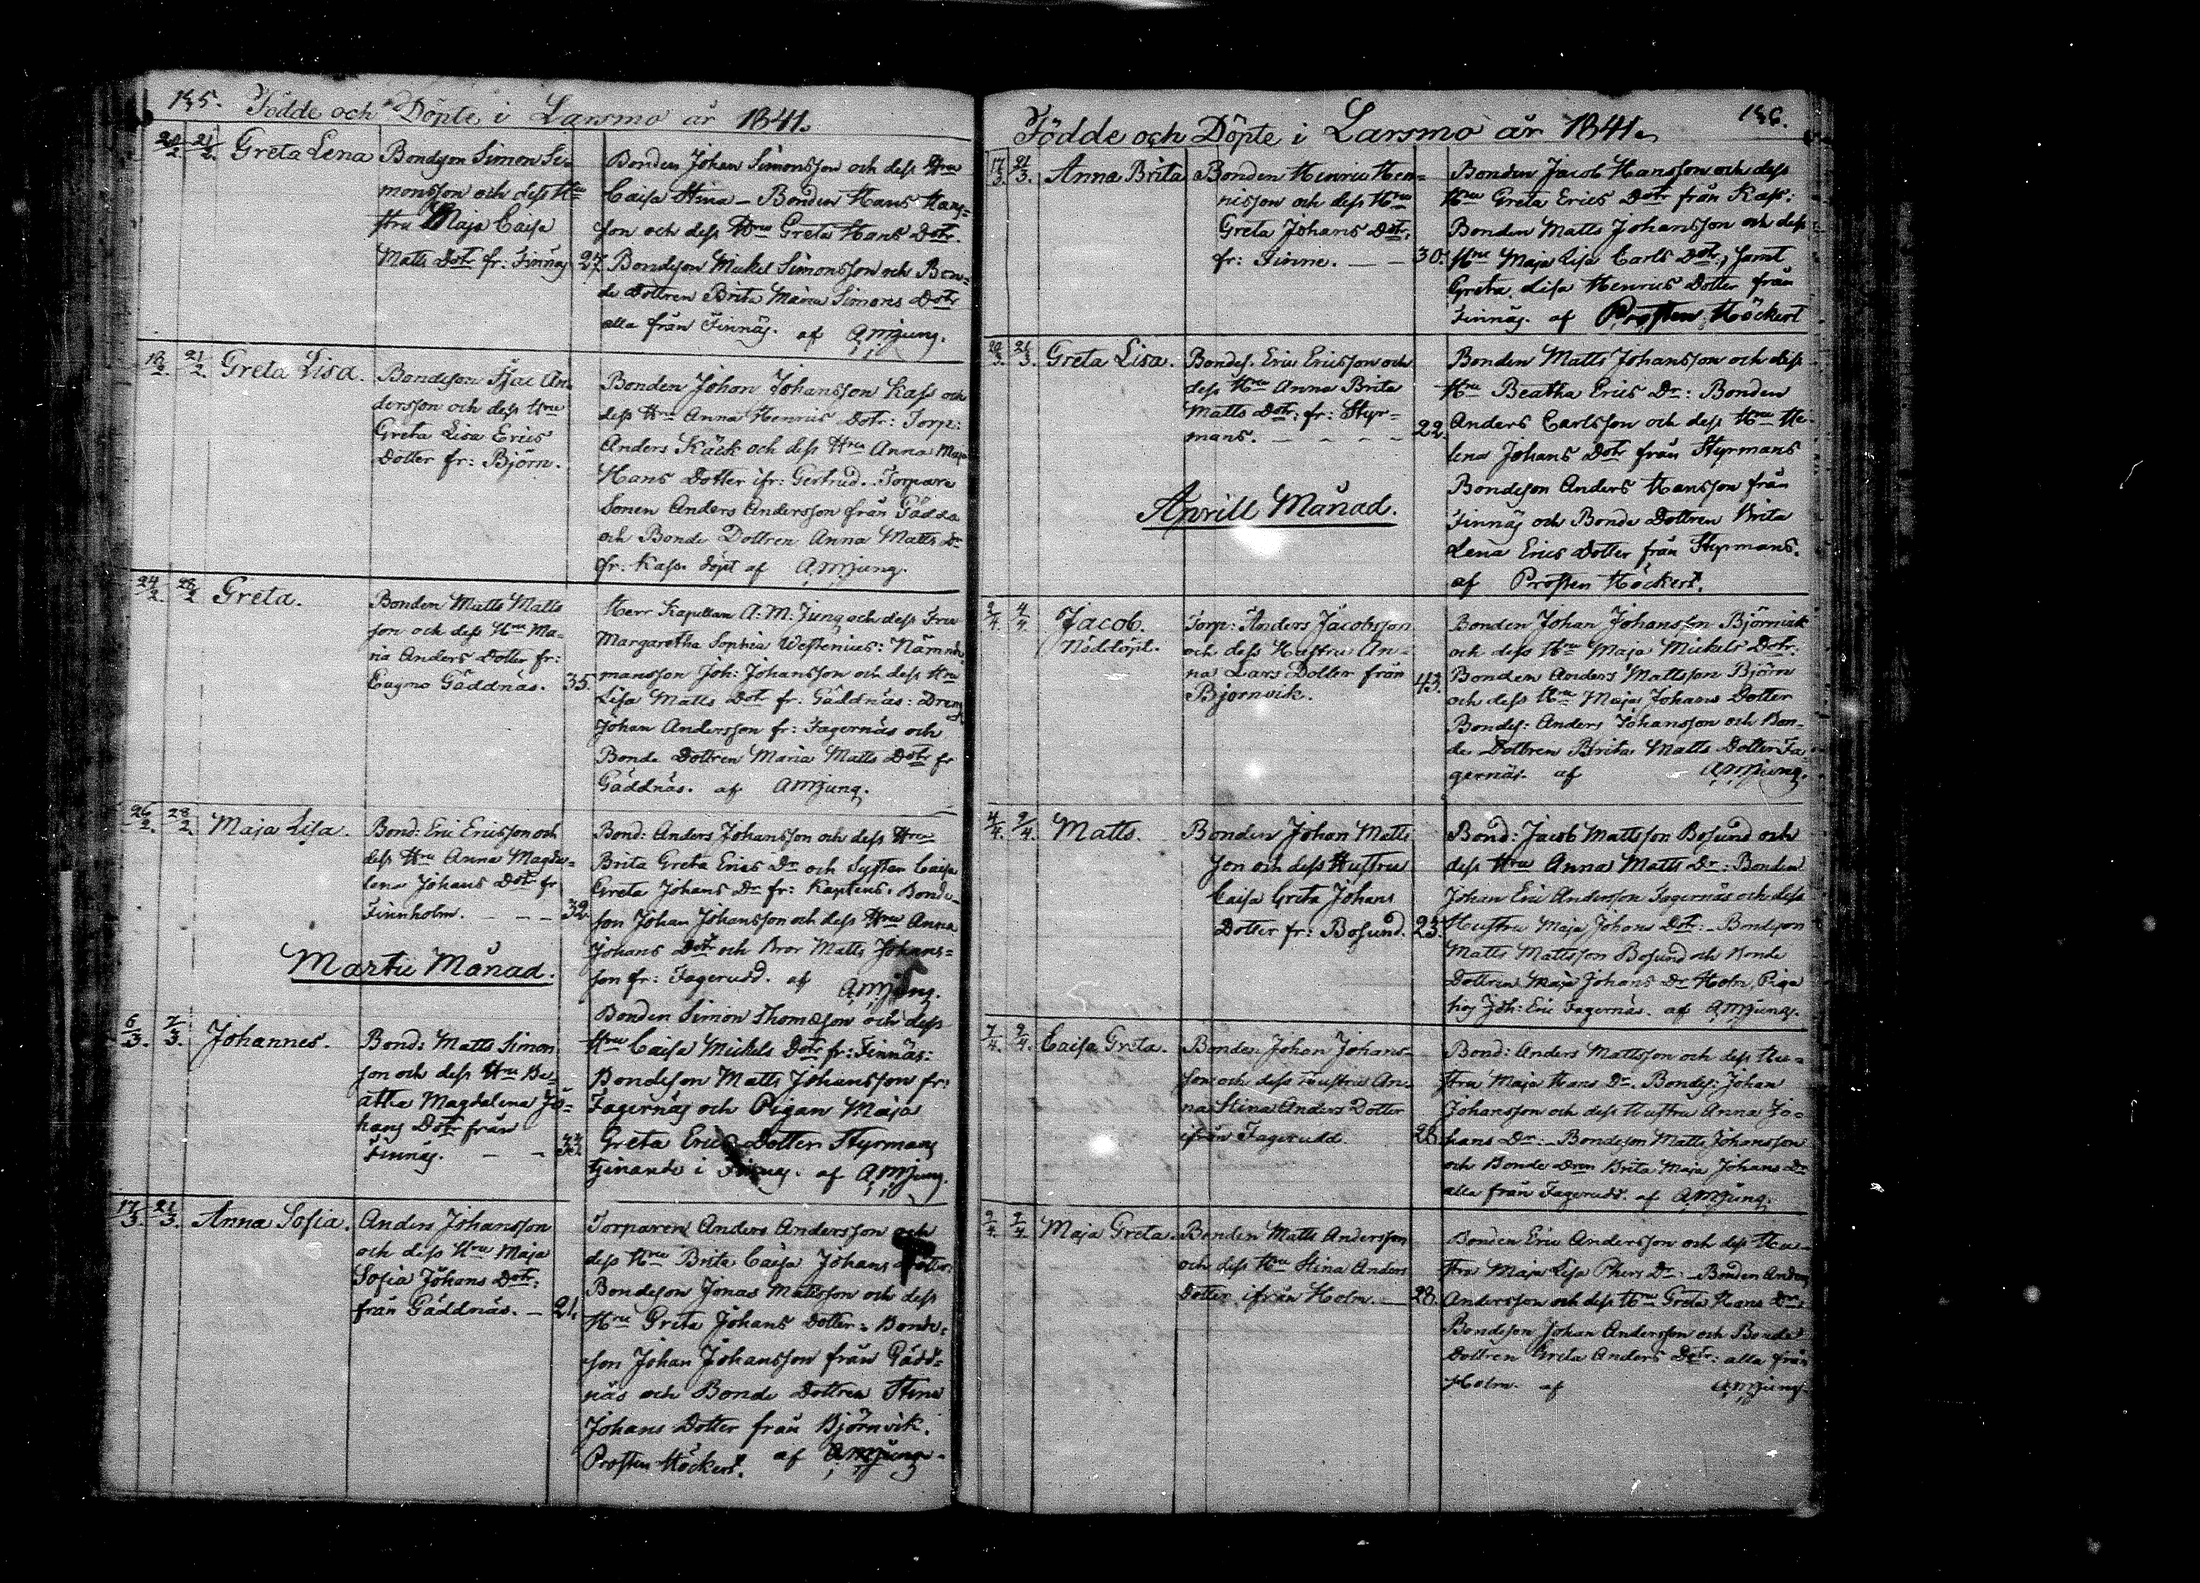 185. Födde och Döpte i Larsmo år 1841.
20/2 21/2. Greta Lena
Bondson Simon Si-
monsson och dess Hu
stru Maja Caisa
Matts Dotr fr: Finnäs 27.
Bonden Johan Simonsson och dess Hru
Caisa Stina – Bonden Hans Hans-
son och dess Hru Greta Hans Dotr.
Bondeson Mickel Simonsson och Bon-
de Dottren Brita Maria Simons Dotr
alla från Finnäs. af AMJung.
18/2. 21/2. Greta Lisa.
Bondeson Isac An-
dersson och dess Hru
Greta Lisa Erics
Dotter fr: Björn.
Bonden Johan Johansson Kass och
dess Hru Anna Henrics Dotr: Torp:
Anders Käck och dess Hru Anna Maja
Hans Dotter ifr: Gertrud. Torpare
Sonen Anders Andersson från Gädda
och Bonde Dottren Anna Matts Dr
fr: Kass. döpt af AMJung.
24/2. 28/2. Greta.
Bonden Matts Matts
son och dess Hru Ma-
ria Anders Dotter fr:
Gäddnäs. 35.
Herr Kapellan A: M: Jung och dess Fru
Margaretha Sophia Westenius: Nämnde-
mansson Joh: Johansson och dess Hru
Lisa Matts Dotr fr: Gäddnäs: Dreng
Johan Andersson fr: Fagernäs och
Bonde Dottren Maria Matts Dotr fr
Gäddnäs. af AMJung.
26/2. 28/2. Maja Lisa.
Bond: Eric Ericsson och
dess Hru Anna Magda-
lena Johans Dotr fr
Finnholm. – – – 32.
Bond: Anders Johansson och dess Hru
Brita Greta Erics Dr och Syster Caisa
Greta Johans Dr fr: Kaptens. Bonde-
son Johan Johansson och dess Hru Anna
Johans Dotr och Bror Matts Johans-
son fr: Fagerudd. af AMJung.
Martii Månad.
6/3. 7/3. Johannes.
Bond: Matts Simon
son och dess Hru Be-
atha Magdalena Jo-
hans Dotr från
Finnäs. – – 33.
Bonden Simon Thomasson och dess
Hru Caisa Mickels Dotr fr: Finnäs:
Bondeson Matts Johansson fr:
Fagernäs och Pigan Maja
Greta Erics Dotter Styrmans
tjenande i Finnäs. af AMJung.
17/3. 21/3. Anna Sofia.
Anders Johansson
och dess Hru Maja
Sofia Johans Dotr:
från Gäddnäs. – 21.
Torparen Anders Andersson och
dess Hru Brita Caisa Johans Dotter:
Bondeson Jonas Mattsson och dess
Hru Greta Johans Dotter: Bonde-
son Johan Johansson från Gädd-
näs och Bonde Dottren Stina
Johans Dotter från Björnvik.
Prosten Höckert. af AMJung.
186.
Födde och Döpte i Larsmo år 1841.
17/3. 21/3. Anna Brita
Bonden Henric Hen-
ricsson och dess Hru
Greta Johans Dotr.
fr: Finne. – – 30.
Bonden Jacob Hansson och dess
Hru Greta Erics Dotr från Kass:
Bonden Matts Johansson och dess
Hru Maja Lisa Carls Dotr, samt
Greta Lisa Henrics Dotter från
Finnäs. af Prosten Höckert
20/3. 21/3. Greta Lisa.
Bondes. Eric Ericsson och
dess Hru Anna Brita
Matts Dotr: fr: Styr-
mans. – – – – 22.
Bonden Matts Johansson och dess
Hru Beatha Erics Dr: Bonden
Anders Carlsson och dess Hru He-
lena Johans Dotr från Styrmans
Bondeson Anders Hansson från
Finnäs och Bonde Dottren Brita
Lena Erics Dotter från Styrmans.
af Prosten Höckert.
Aprill Månad.
2/4. 4/4. Jacob.
Nöddöpt.
Torp: Anders Jacobsson
och dess Hustru An-
na Lars Dotter från
Björnvik. 43.
Bonden Johan Johansson Björnvik
och dess Hru Maja Mickels Dotr:
Bonden Anders Mattsson Björn
och dess Hru Maja Johans Dotter
Bondes: Anders Johansson och Bon-
de Dottren Brita Matts Dotter Fa-
gernäs. af AMJung.
4/4. 9/4. Matts.
Bonden Johan Matts
son och dess Hustru
Caisa Greta Johans
Dotter fr: Bosund. 23.
Bond: Jacob Mattsson Bosund och
dess Hru Anna Matts Dr: Bonden
Johan Eric Andersson Fagernäs och dess
Hustru Maja Johans Dotr: – Bondeson
Matts Mattsson Bosund och Bonde
Dottren Maja Johans Dr Holm, Piga
hos Joh: Eric Fagernäs. af AMJung.
7/4. 9/4. Caisa Greta.
Bonden Johan Johans-
son och dess Hustru An-
na Stina Anders Dotter
ifrån Fagerudd. 28.
Bond: Anders Mattsson och dess Hu-
stru Maja Hans Dr. Bondes: Johan
Johansson och dess Hustru Anna Jo-
hans Dr: – Bondeson Matts Johansson
och Bonde Dren Brita Maja Johans Dr
alla från Fagerudd. af AMJung.
9/4. 9/4. Maja Greta.
Bonden Matts Andersson
och dess Hru Stina Anders
Dotter ifrån Holm. – 28.
Bonden Eric Andersson och dess Hu-
stru Maja Lisa Phers Dr – Bonden Anders
Andersson och dess Hru Greta Hans Dr:
Bondeson Johan Andersson och Bonde
Dottren Greta Anders Dotr: alla från
Holm. af AMJung.